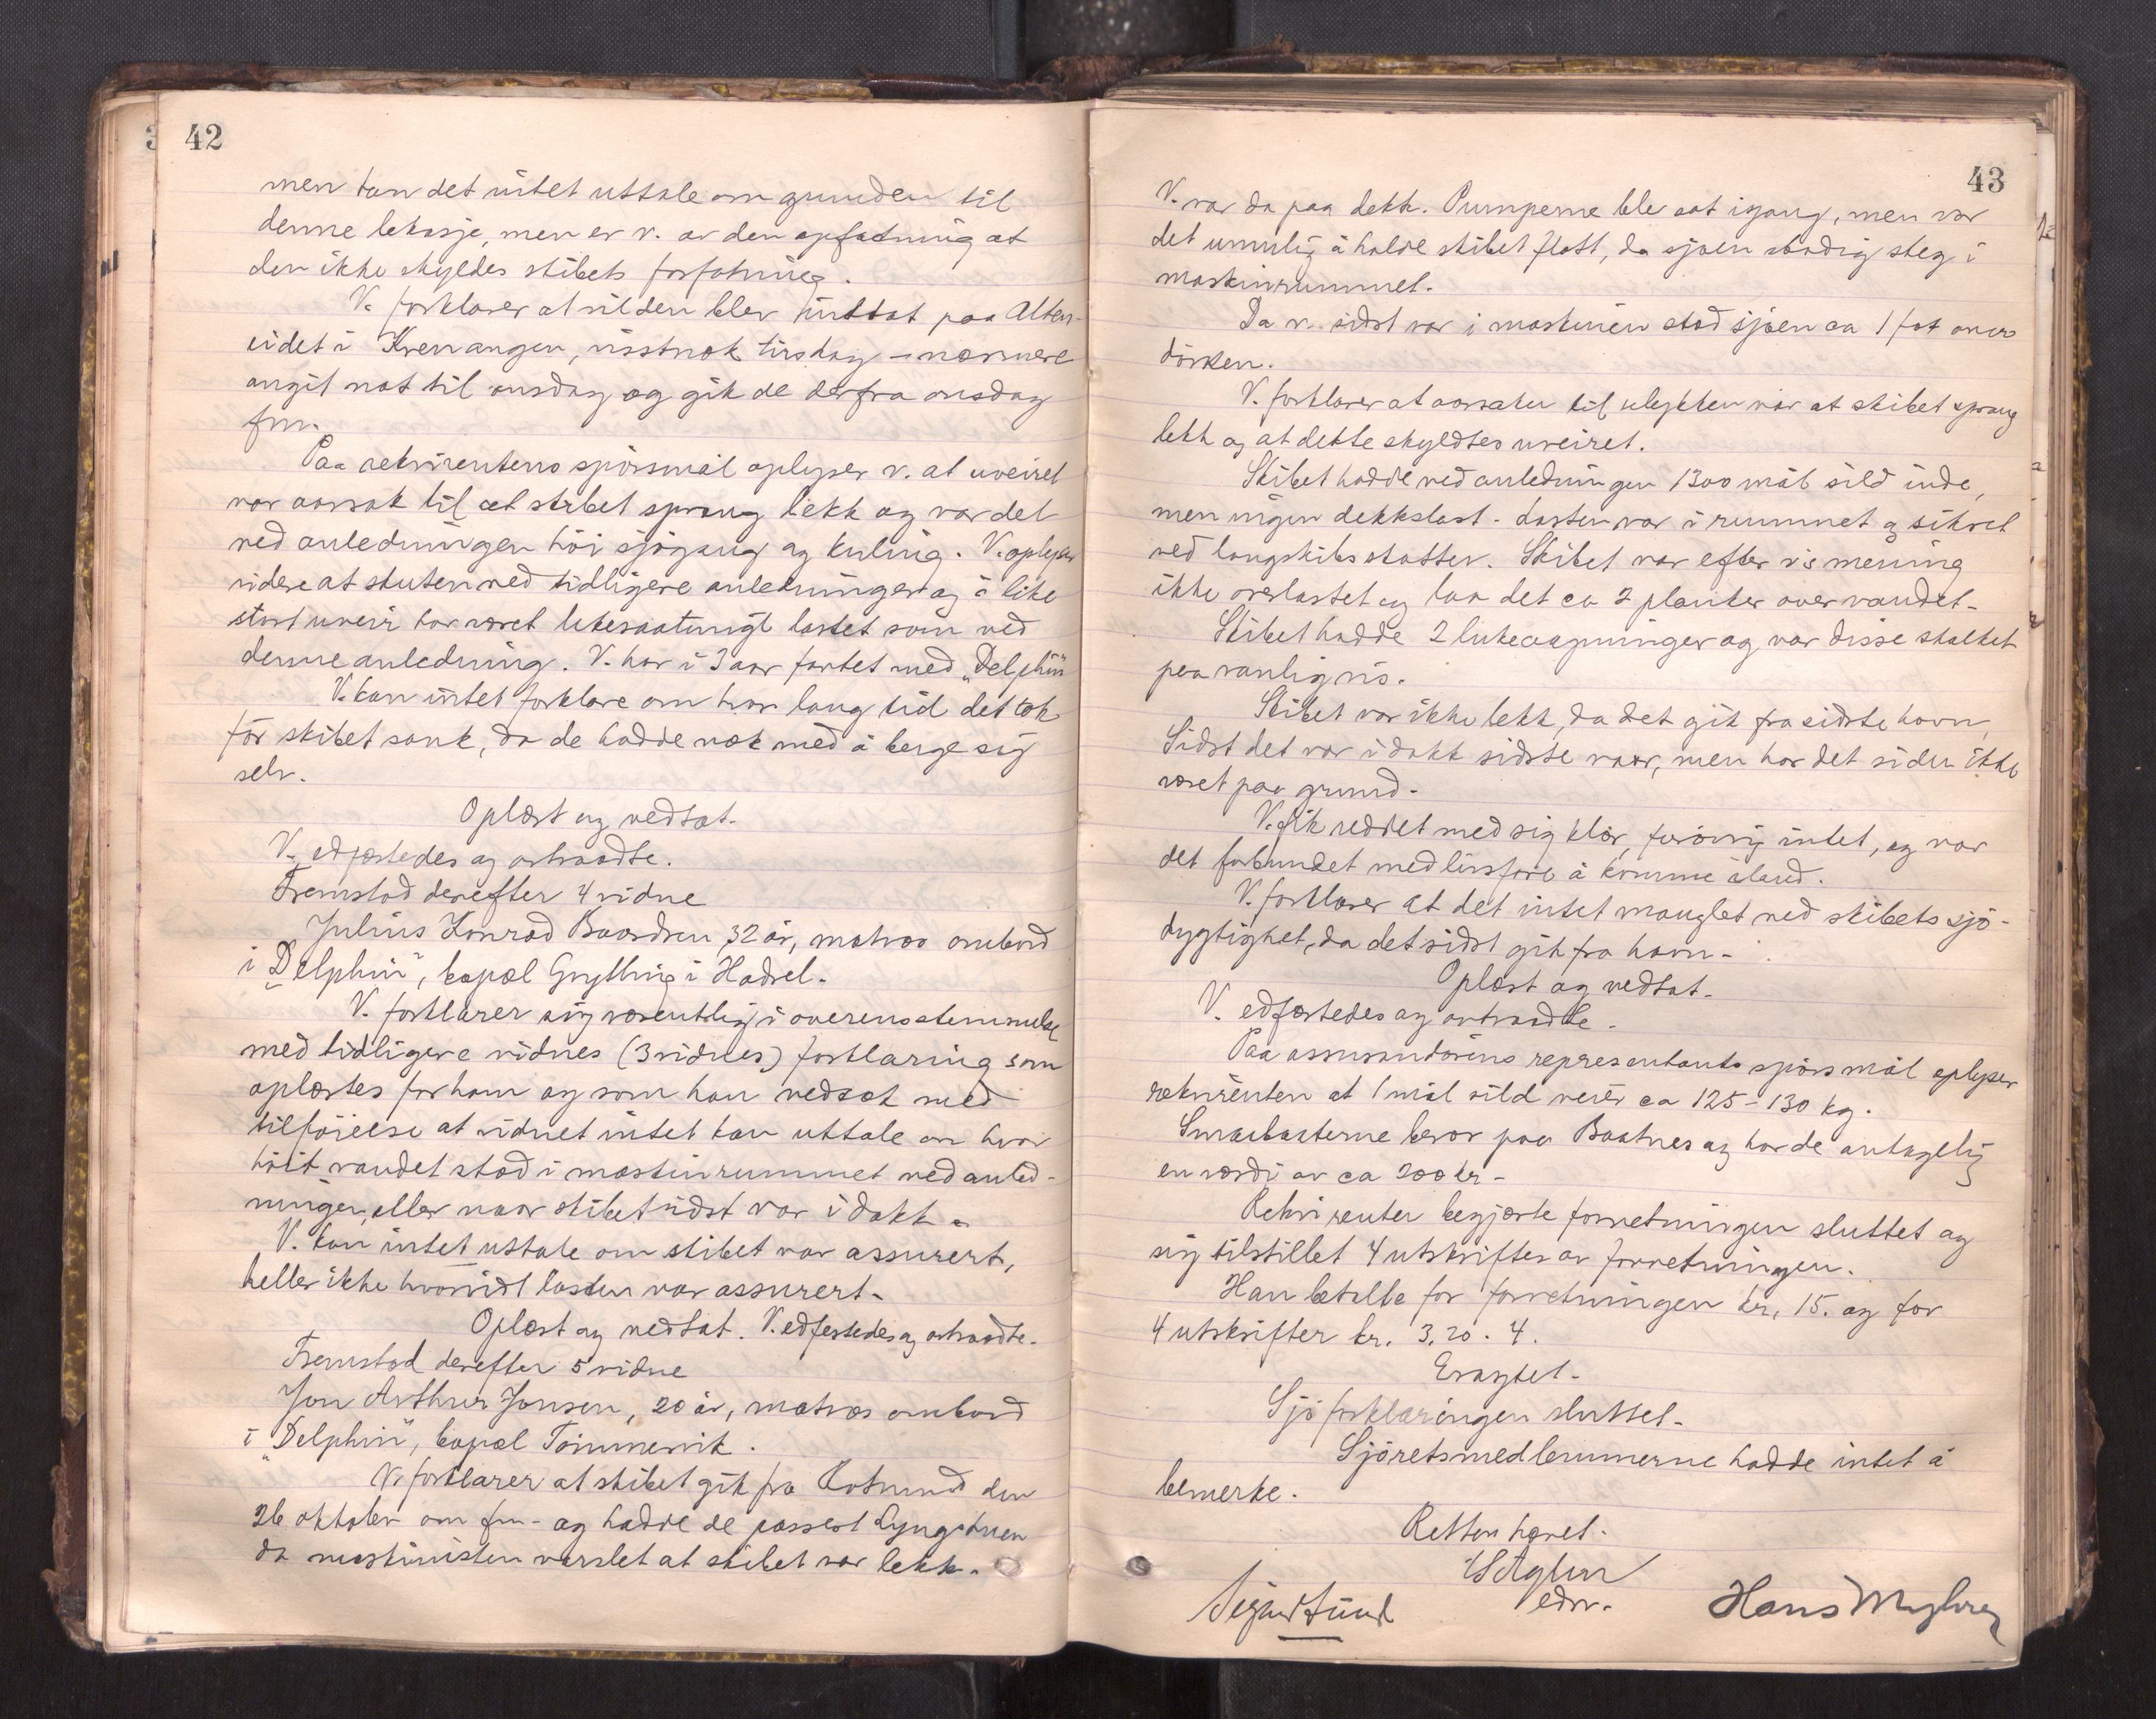 42
men kan det intet uttale om grunden til
denne lekasje, men er v. av den opfatning at
den ikke skyldes skibets forfatning.
V. forklarer at silden blev inttat paa Alten-
eidet i Kvenangen, visstnok tirsdag - nærmere
angit nat til onsdag og gik de derfra onsdag
fm.
Paa rekvirentens spörsmål oplyser v. at uveiret
var aarsak til at skibet sprang lekk og var det
ved anledningen höi sjögang og kuling. V. oplyser
videre at skuten ved tidligere anledninger og i like
stort uveir har været likesaatungt lastet som ved
denne anledning. V. har i 3 aar fartet med "Delphin"
V. kan intet forklare om hvor lang tid det tok
för skibet sank, da de hadde nok med å berge sig
selv.
Oplæst og vedtat.
V. edfæstedes og avtraadte.
Fremstod derefter 4 vidne
Julius Konrad Baardsen, 32 år, matros ombord
i "Delphin", bopæl Grytting i Hadsel.
V. forklarer sig væsentlig i overensstemmelse
med tidligere vidnes (3 vidnes) forklaring som
oplæstes for ham og som han vedtok med
tilföielse at vidnet intet kan uttale om hvor
höit vandet stod i maskinrummet ved anled-
ningen, eller naar skibet sidst var i dokk.
V. kan intet uttale om skibet var assurert,
heller ikke hvorvidt lasten var assurert.
Oplæst og vedtat. V. edfestedes og avtraadte.
Fremstod derefter 5 vidne
Jon Arthur Jonsen, 20 år, matros ombord
i "Delphin", bopæl Tömmervik.
V. forklarer at skibet gik fra Rotsund den
26 oktober om fm. og hadde de passert Lyngstuen
da maskinisten varslet at skibet var lekk.
43
V. var da paa dekk. Pumperne blev sat igang, men var
det umulig å holde skibet flott, da sjøen stadig steg i
maskinrummet.
Da v. sidst var i maskinen stod sjøen ca 1 fot over
dörken.
V. forklarer at aarsaken til ulykken var at skibet sprang
lekk og at dette skyldtes uveiret.
Skibet hadde ved anledningen 1300 mål sild inde,
men ingen dekkslast. Lasten var i rummet og sikret
ved langskibs skotter. Skibet var efter v's mening
ikke overlastet og laa det ca 2 planker over vandet.
Skibet hadde 2 lukeaapninger og var disse skalket
paa vanlig vis.
Skibet var ikke lekk, da det gik fra sidste havn.
Sidst det var i dokk sidste vaar, men har det siden ikke
været paa grund.
V. fik reddet med sig klær, forövrig intet, og var
det forbundet med livsfare å komme iland.
V. forklarer at det intet manglet ved skibets sjö-
dygtighet, da det sidst gik fra havn.
Oplæst og vedtat.
V. edfæstedes og avtraadte.
Paa assurandörens representants spörsmål oplyser
rekvirenten at 1 mål sild veier ca 125-130 kg.
Smaabaaterne berør paa Baatnes og har de antagelig
en værdi av ca 200 kr.
Rekvirenten begjærte forretningen sluttet og
sig tilstillet 4 utskrifter av forretningen.
Han betalte for forretningen kr. 15. og for
4 utskrifter kr. 3,20 . 4.
Eragtet.
Sjöforklaringen sluttet.
Sjöretsmedlemmerne hadde intet å
bemerke.
Retten hævet.
edsv.
Sigurd Lund
Hans Myhre